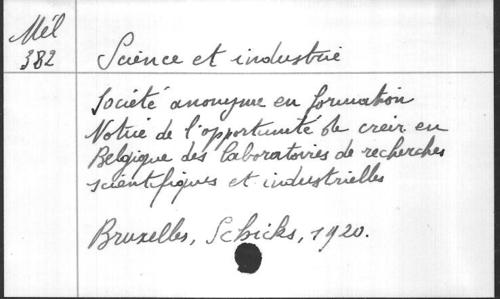 Mél
382
Science et industrie
Société anonyme en formation
Notice de l'opportunité de créer en
Belgique des laboratoires de recherches
scientifiques et industrielles
Bruxelles, Schicks, 1920.